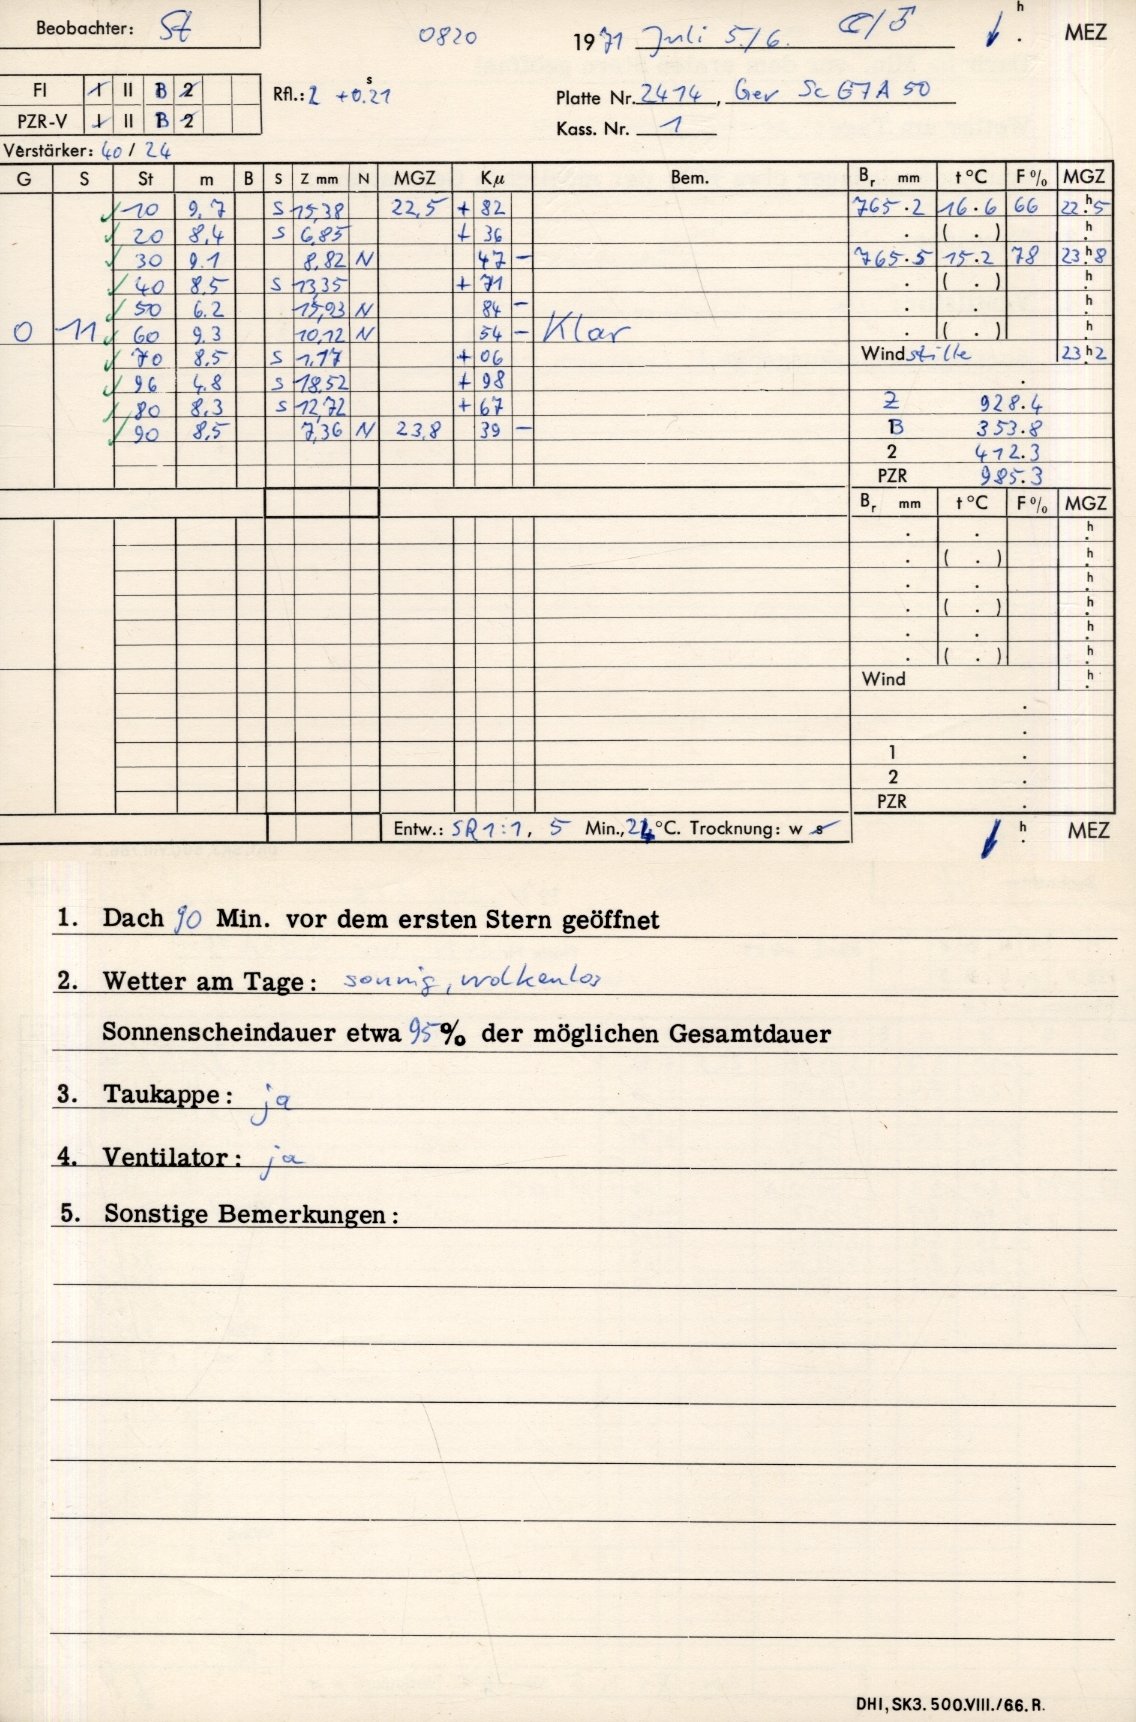 Beobachter: St 0820 1971 Juli 5./6. ☾/♂ h . MEZ
FI I II B 2 Rfl.: 2 +0.21 s Platte Nr. 2414, Gev Sc 67 A 50
PZR-V I II B 2 Kass. Nr. 1
Verstärker: 40 / 24
G S St m B S Z mm N MGZ Kμ Bem. Br mm t °C F % MGZ
10 9,7 S 15,38 22,5 + 82 765.2 16.6 66 22h5
20 8,4 S 6,85 + 36 . ( . ) h
30 9.1 8,82 N 47 – 765.5 15.2 78 23h8
40 8,5 S 13,35 + 71 . ( . ) h
50 6.2 15,93 N 84 – . . h
0 11 60 9,3 10,12 N 54 – Klar . ( . ) h
70 8,5 S 1,17 + 06 Windstille 23h2
96 4,8 S 18,52 + 98 .
80 8,3 S 12,72 + 67 Z 928.4
90 8,5 7,36 N 23,8 39 – B 353.8
2 412.3
PZR 985.3
Br mm t °C F % MGZ
. . h
. ( . ) h
. . h
. ( . ) h
. . h
. ( . ) h
Wind h
.
.
1 .
2 .
PZR .
Entw.: SR 1:1, 5 Min., 24 °C. Trocknung: w s h . MEZ
1. Dach 90 Min. vor dem ersten Stern geöffnet
2. Wetter am Tage: sonnig, wolkenlos
Sonnenscheindauer etwa 95 % der möglichen Gesamtdauer
3. Taukappe: ja
4. Ventilator: ja
5. Sonstige Bemerkungen:
DHI, SK3. 500.VIII./66. R.